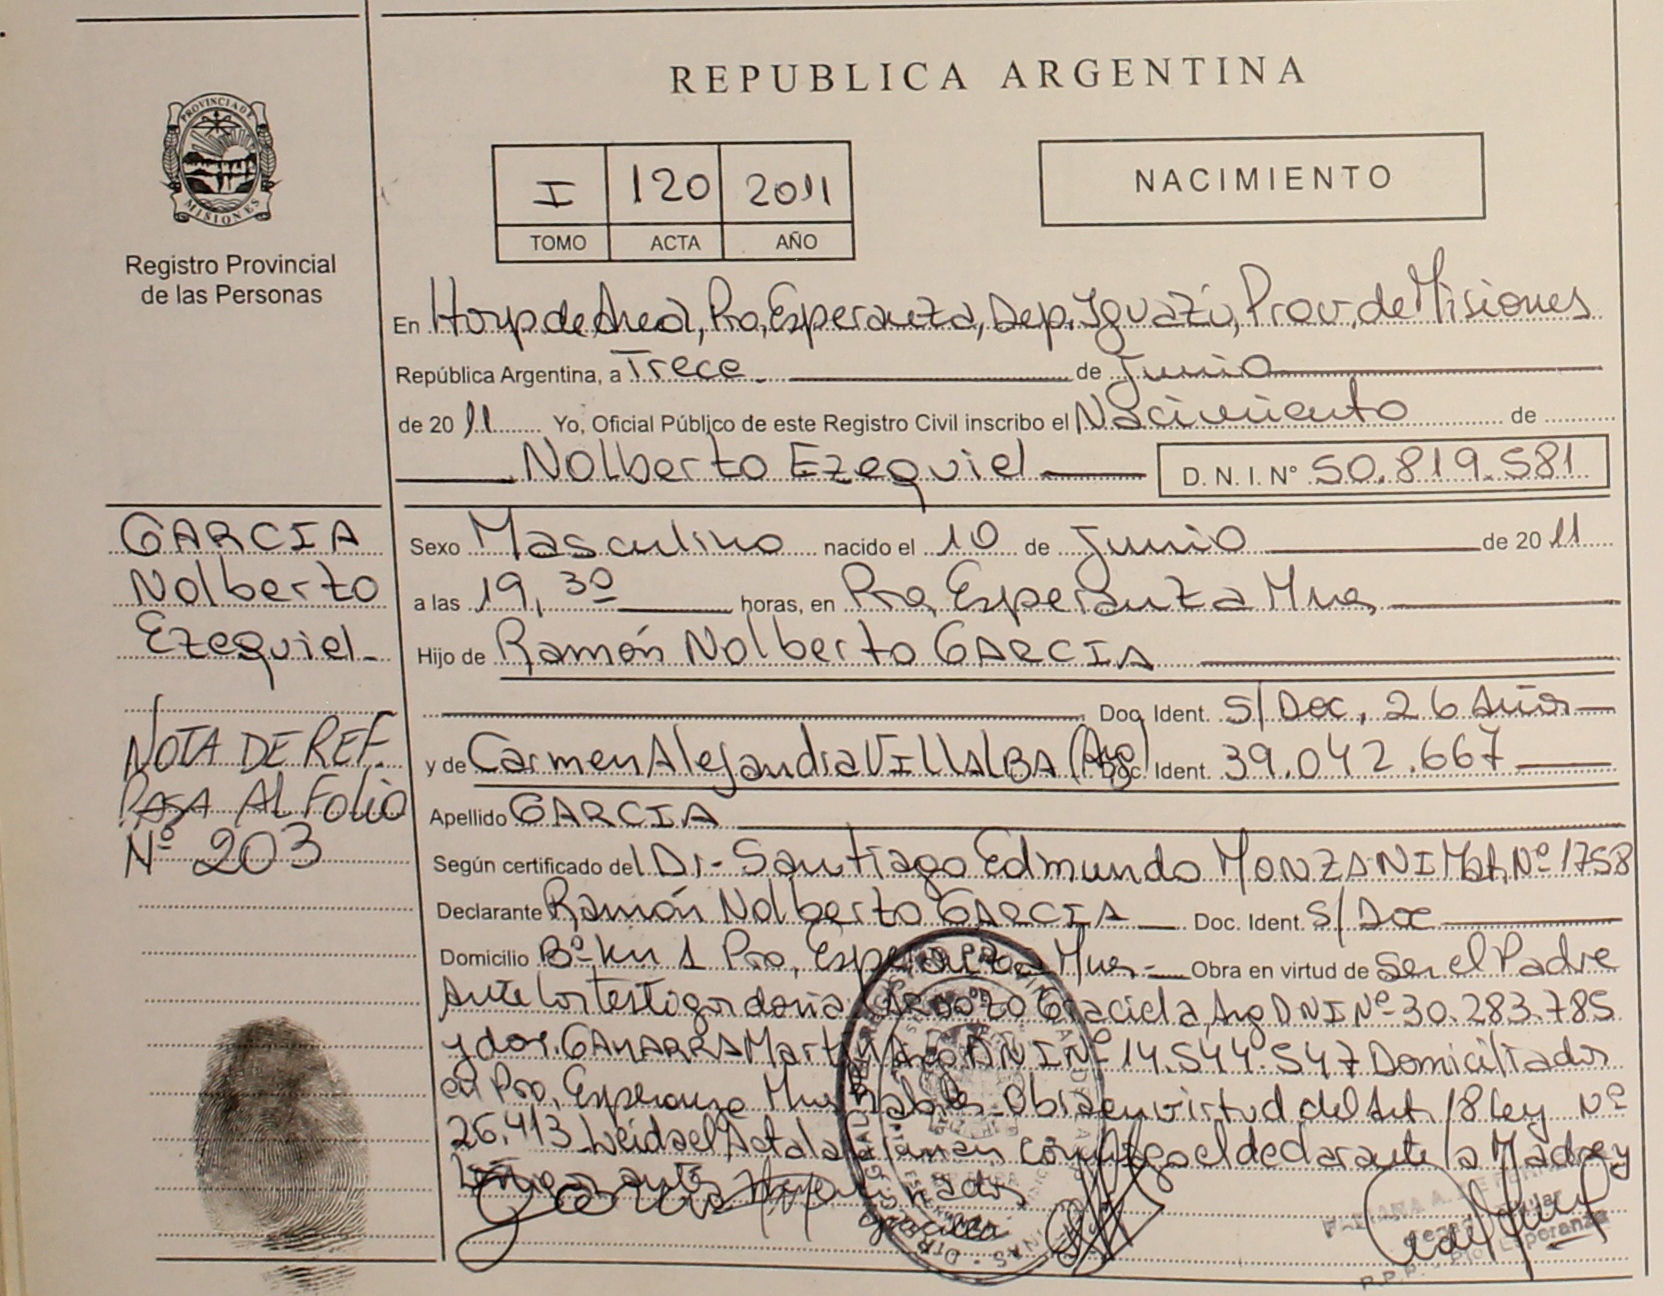 REPUBLICA ARGENTINA
PROVINCIA DE
MISIONES
Registro Provincial
de las Personas
I 120 2011
TOMO ACTA AÑO
NACIMIENTO
En Hosp de Area, Pto, Esperanza, Dep. Iguazú, Prov. de Misiones
República Argentina, a Trece de Junio
de 2011 Yo, Oficial Público de este Registro Civil inscribo el Nacimiento de
Nolberto Ezequiel D. N. I. N° 50.819.581
GARCIA
Nolberto
Ezequiel
NOTA DE REF.
PASA AL Folio
Nº 203
Sexo Masculino nacido el 10 de Junio de 2011
a las 19,30 horas, en Pto, Esperanza Mnes
Hijo de Ramón Nolberto GARCIA
Doc. Ident. S/Doc, 26 Años
y de Carmen Alejandra VILLALBA (Arg) Doc. Ident. 39.042.667
Apellido GARCIA
Según certificado del Dr- Santiago Edmundo MONZANI Mat, Nº 1758
Declarante Ramón Nolberto GARCIA Doc. Ident. S/Doc
Domicilio Bº Km 1 Pto, Esperanza Mnes Obra en virtud de Ser el Padre
Ante los testigos doña Graciela, Arg DNI Nº 30.283.785
y don. GAMARRA Martin Arg DNI Nº 14.544.547 Domiciliados
en Pto, Esperanza Mnes Obra en virtud del Art 18 Ley Nº
26.413 Leida el Acta la firman conmigo el declarante la Madre y